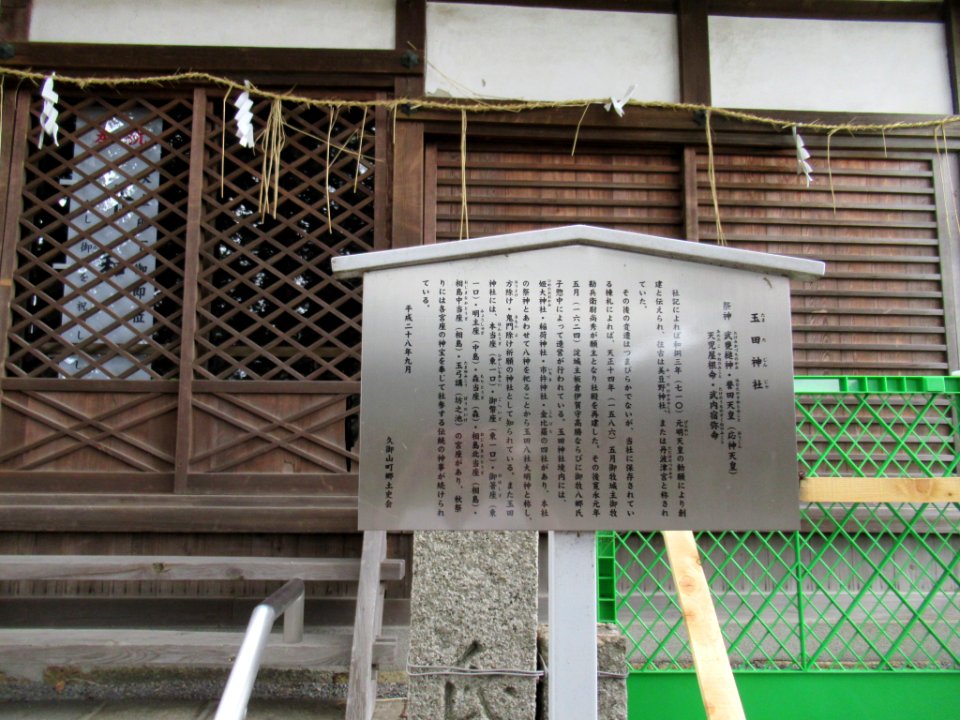 玉田神社
祭神 武甕槌神・誉田天皇(応神天皇)
天児屋根命・武内宿弥命
社記によれば和銅三年(七一〇)元明天皇の勅願により創
建と伝えられ、往古は美豆野神社、または丹波津宮と称され
ていた。
その後の変遷はつまびらかでないが、当社に保存されてい
る棟札によれば、天正十四年(一五八六)五月御牧城主御牧
勘兵衛尉尚秀が願主となり社殿を再建した。その後寛永元年
五月(一六二四)淀城主板倉伊賀守高勝ならびに御牧八郷氏
子惣中によって造営が行われている。玉田神社境内には、
姫大神社・稲荷神社・市杵神社・金比羅の四社があり、本社
の祭神とあわせて八神を祀ることから玉田八社大明神と称し、
方除け・鬼門除け祈願の神社として知られている。また玉田
神社には、本当座(東一口)・御幣座(東一口)・御箸座(東
一口)・明主座(中島)・森当座(森)・相島北当座(相島)・
相島中当座(相島)・玉弓講(坊之池)の宮座があり、秋祭
りには各宮座の神宝を奉じて社参する伝統の神事が続けられ
ている。
平成二十八年九月
久御山町郷土史会